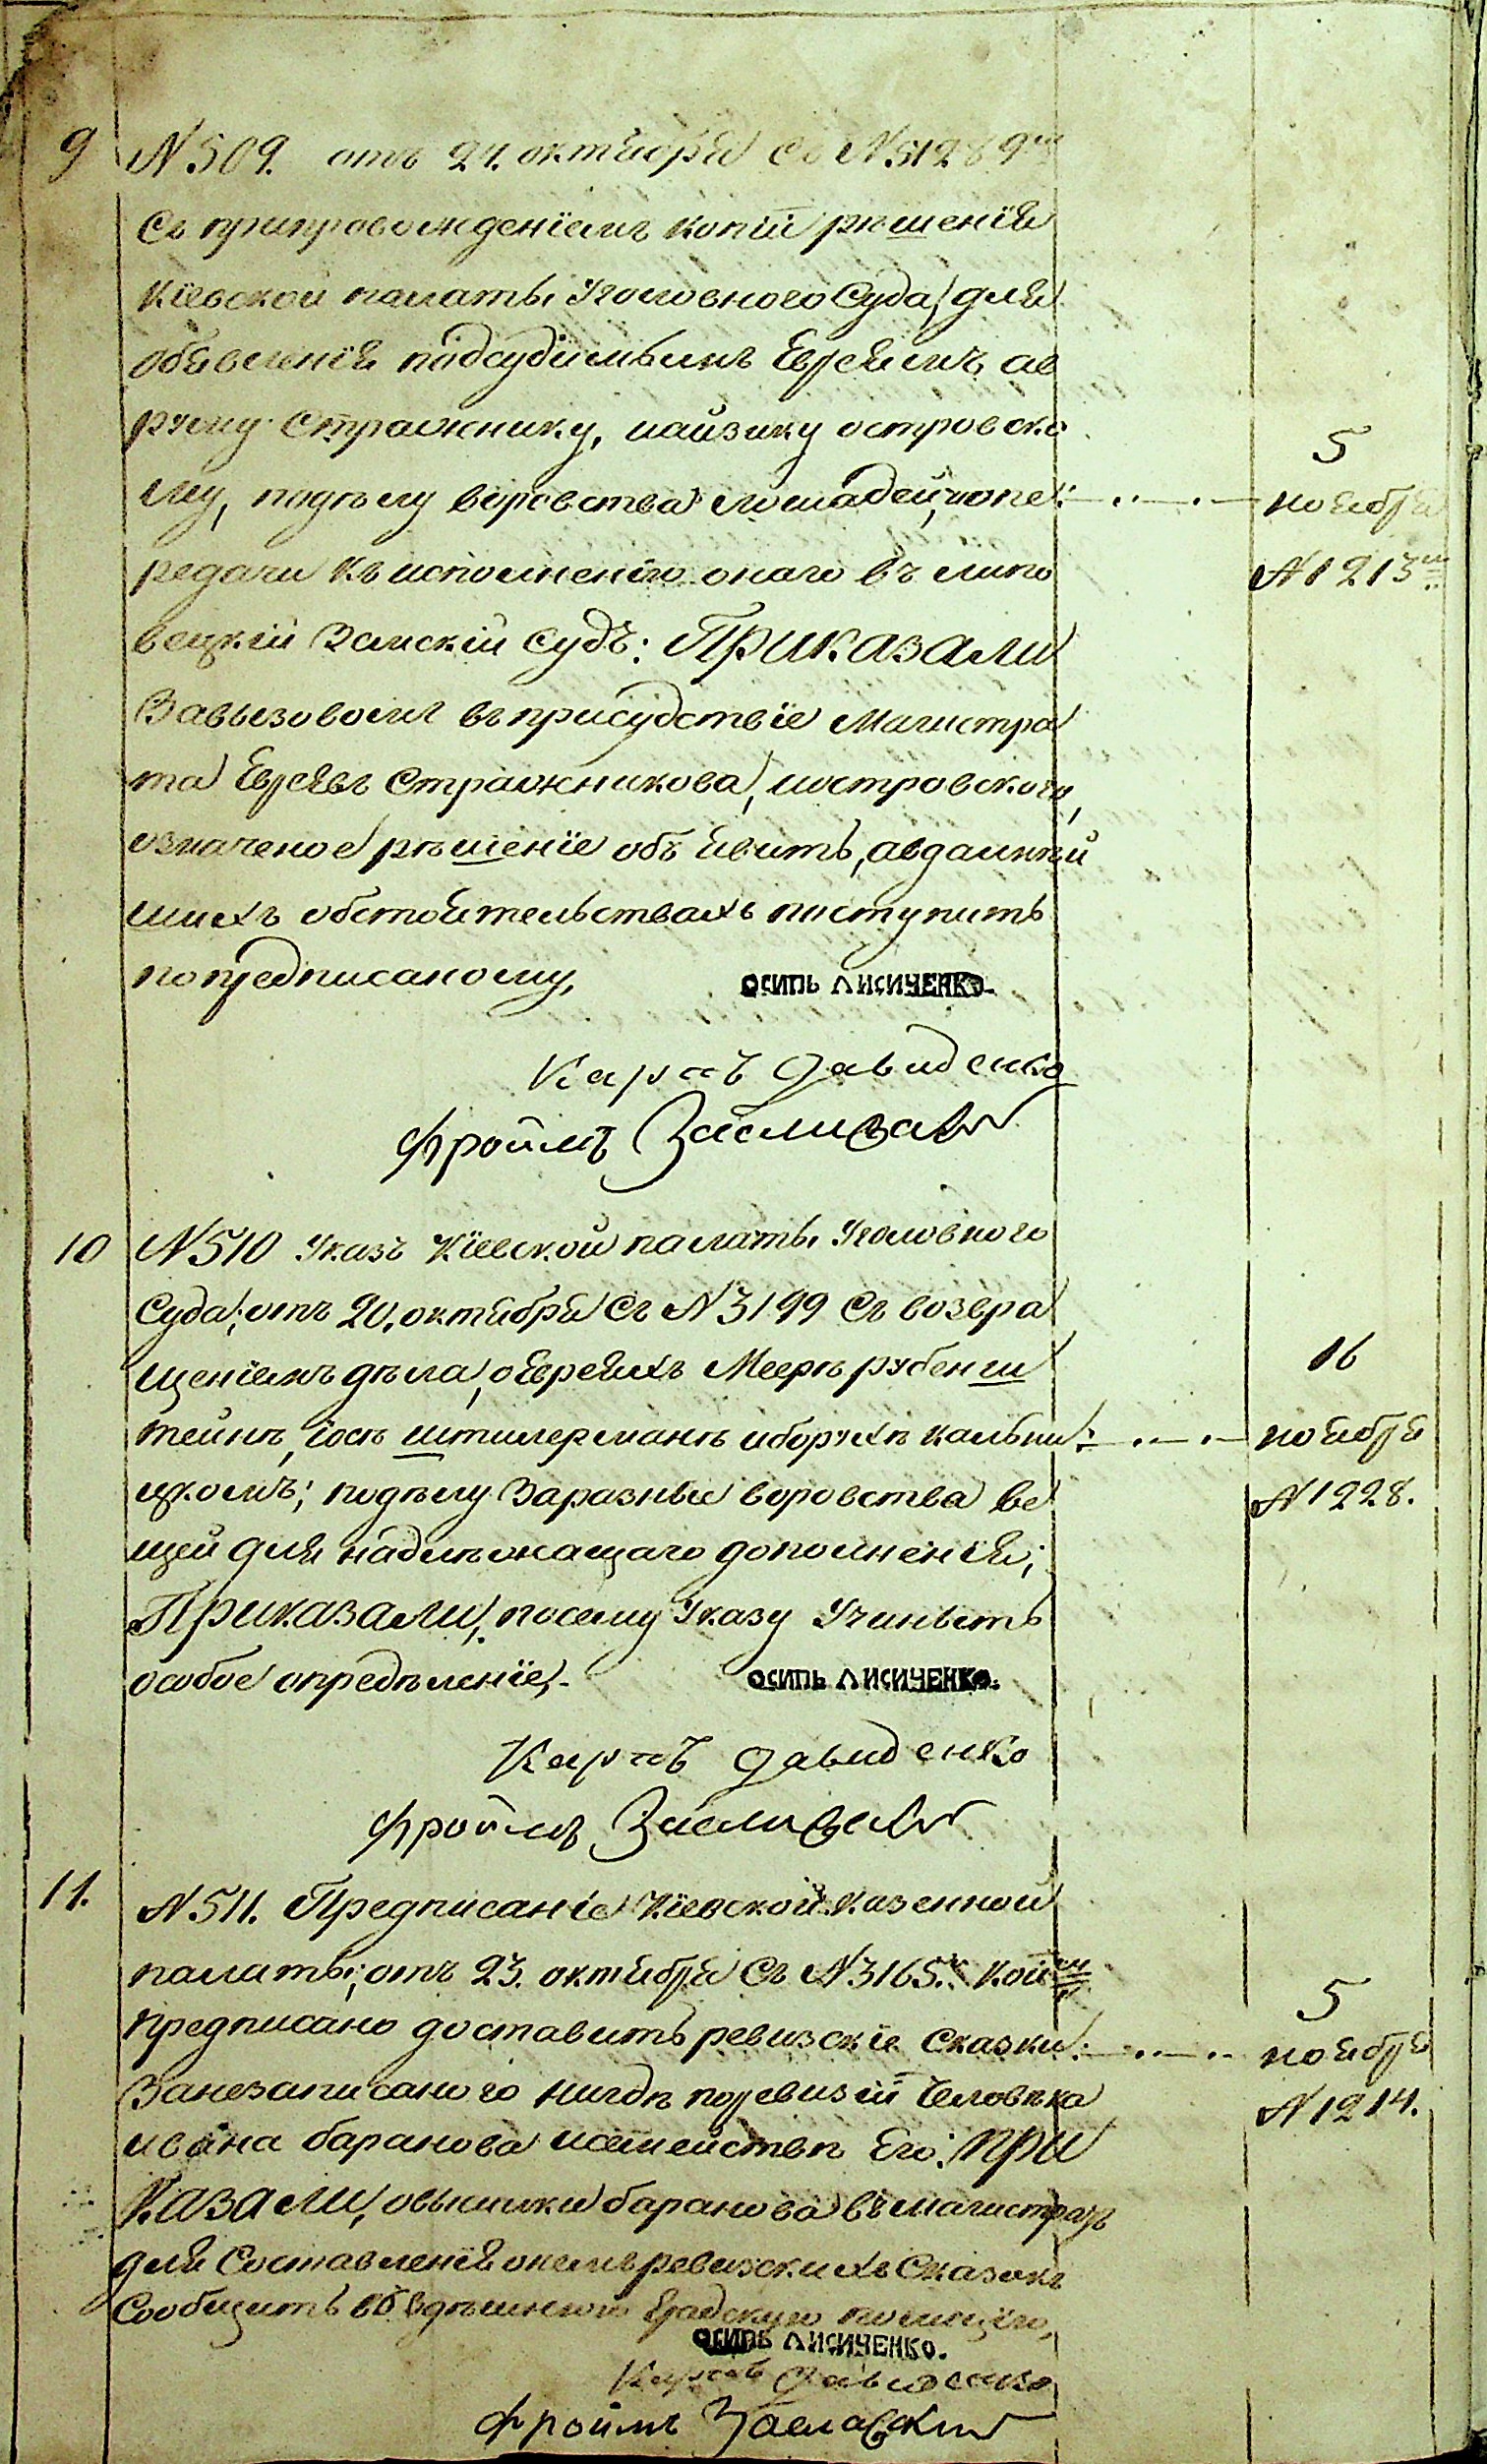 9 №509. отъ 24. октября съ №31289мъ
Съ припровожденіемъ копіи рѣшенія
Кіевской палаты Уголовного Суда, для
объявленія подсудимымъ Евреямъ, ав
руму Стражнику, иайзику островско
му, подѣлу воровства лошадей, ипопе
редачи къ исполненію онаго въ липо
вецкій Земскій судъ: Приказали
Завызовомъ въ присудствіе Магистра
та Евреевъ Стражникова, иостровского,
означеное рѣшеніе объявить, авдальнѣй
шихъ обстоятельствахъ поступить
попредписаному,
5
ноября
№1213мъ
осипъ лисиченко.
Карпъ Давиденко
Фроймъ Заславскій
10 №510 Указъ Кіевской палаты Уголовного
Суда; отъ 20, октября съ №3199 съ возвра
щеніемъ дѣла, оЕвреяхъ Меерѣ рубенш
тейнѣ, іосѣ штилерманѣ иборухѣ кальни
цкомъ; подѣлу Заразные воровства ве
щей для надлѣжащаго дополненія;
Приказали, посему Указу Учинить
особое опредѣленіе,-
16
ноября
№1228.
осипъ лисиченко.
Карпъ Давиденко
Фроймъ Заславскій
11. №511. Предписаніе Кіевской Казенной
палаты; отъ 23. октября съ №3165. Коимъ
предписано доставить ревизскіе сказки
Занезаписаного нигдѣ поревизіи Человѣка
ивана баранова исемействѣ Его: При
казали, овысылки баранова въ магистратъ
для Составленія онемъ ревизскихъ Сказокъ
Сообщить въ Здѣшнюю Градскую полицію,
5
ноября
№1214.
осипъ лисиченко.
Карпъ Давиденко
Фроймъ Заславскій